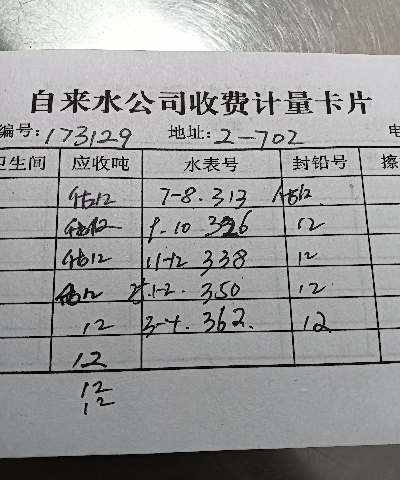 自来水公司收费计量卡片
编号: 173129 地址: 2-702 电
卫生间 应收吨 水表号 封铅号 擦
12 7-8. 313 12
12 9-10 326 12
12 11-12 338 12
12 1-2. 350 12
12 3-4. 362. 12
12
12
12